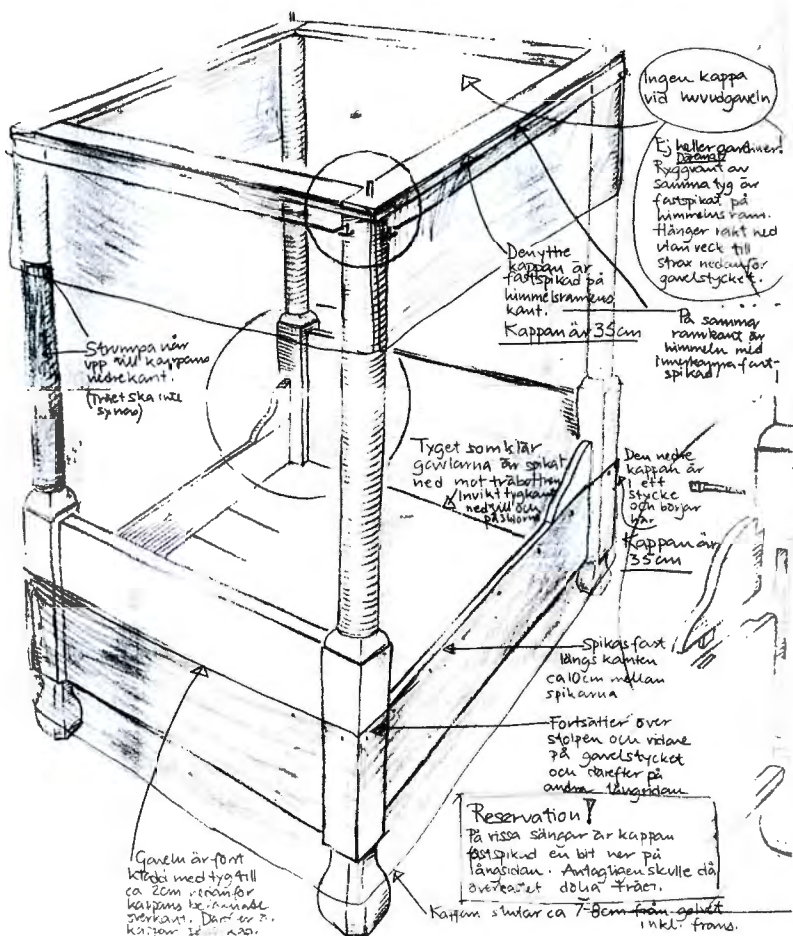 Ingen kappa
vid huvudgaveln
Ej heller gardiner.
Däremot
Ryggvant av
samma tyg är
fastspikat på
himmelns ram.
Hänger rakt ned
utan veck till
strax nedanför
gavelstycket.
Den yttre
kappan är
fastspikad på
himmelsramens
kant.
Kappan är 35cm
På samma
ramkant är
himmeln med
innerkappa fast-
spikad
Strumpa når
upp till kappans
nedre kant.
(Träet ska inte
synas)
Tyget som klär
gavlarna är spikat
ned mot träbotten
Invikt tygkant
nedtill och
på sidorna
Den nedre
kappan är
i ett
stycke
och börjar
här
Kappan är
35cm
Spikas fast
längs kanten
ca 10cm mellan
spikarna
Fortsätter över
stolpen och vidare
på gavelstycket
och därefter på
andra långsidan
Reservation!
På vissa sängar är kappan
fastspikad en bit ner på
långsidan. Antagligen skulle då
överkastet dölja träet.
Gaveln är först
klädd med tyg till
ca 2cm nedanför
kappans
överkant.
Kappan slutar ca 7-8cm från golvet
inkl. frans.